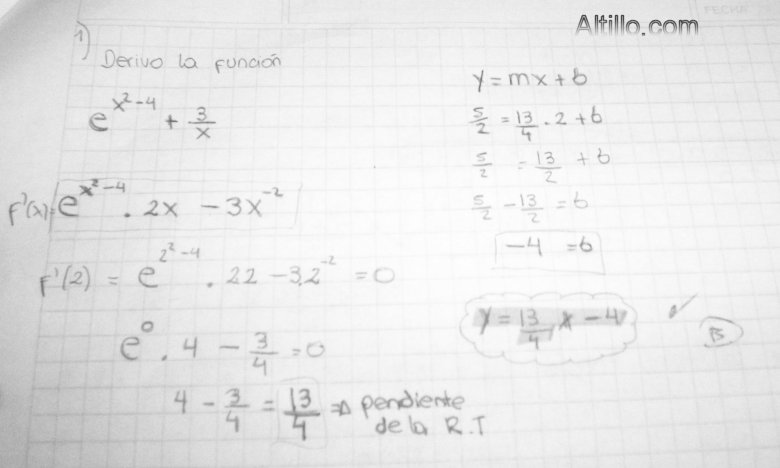 FECHA
Altillo.com
1)
Derivo la función
e^{x²-4} + 3/x
F'(x)= e^{x²-4} . 2x - 3x^{-2}
F'(2) = e^{2²-4} . 2.2 - 3.2^{-2} = 0
e^0 . 4 - 3/4 = 0
4 - 3/4 = 13/4 ⇒ pendiente
de la R.T
y = mx + b
5/2 = 13/4 . 2 + b
5/2 = 13/2 + b
5/2 - 13/2 = b
-4 = b
y = 13/4 x - 4 ✓
B